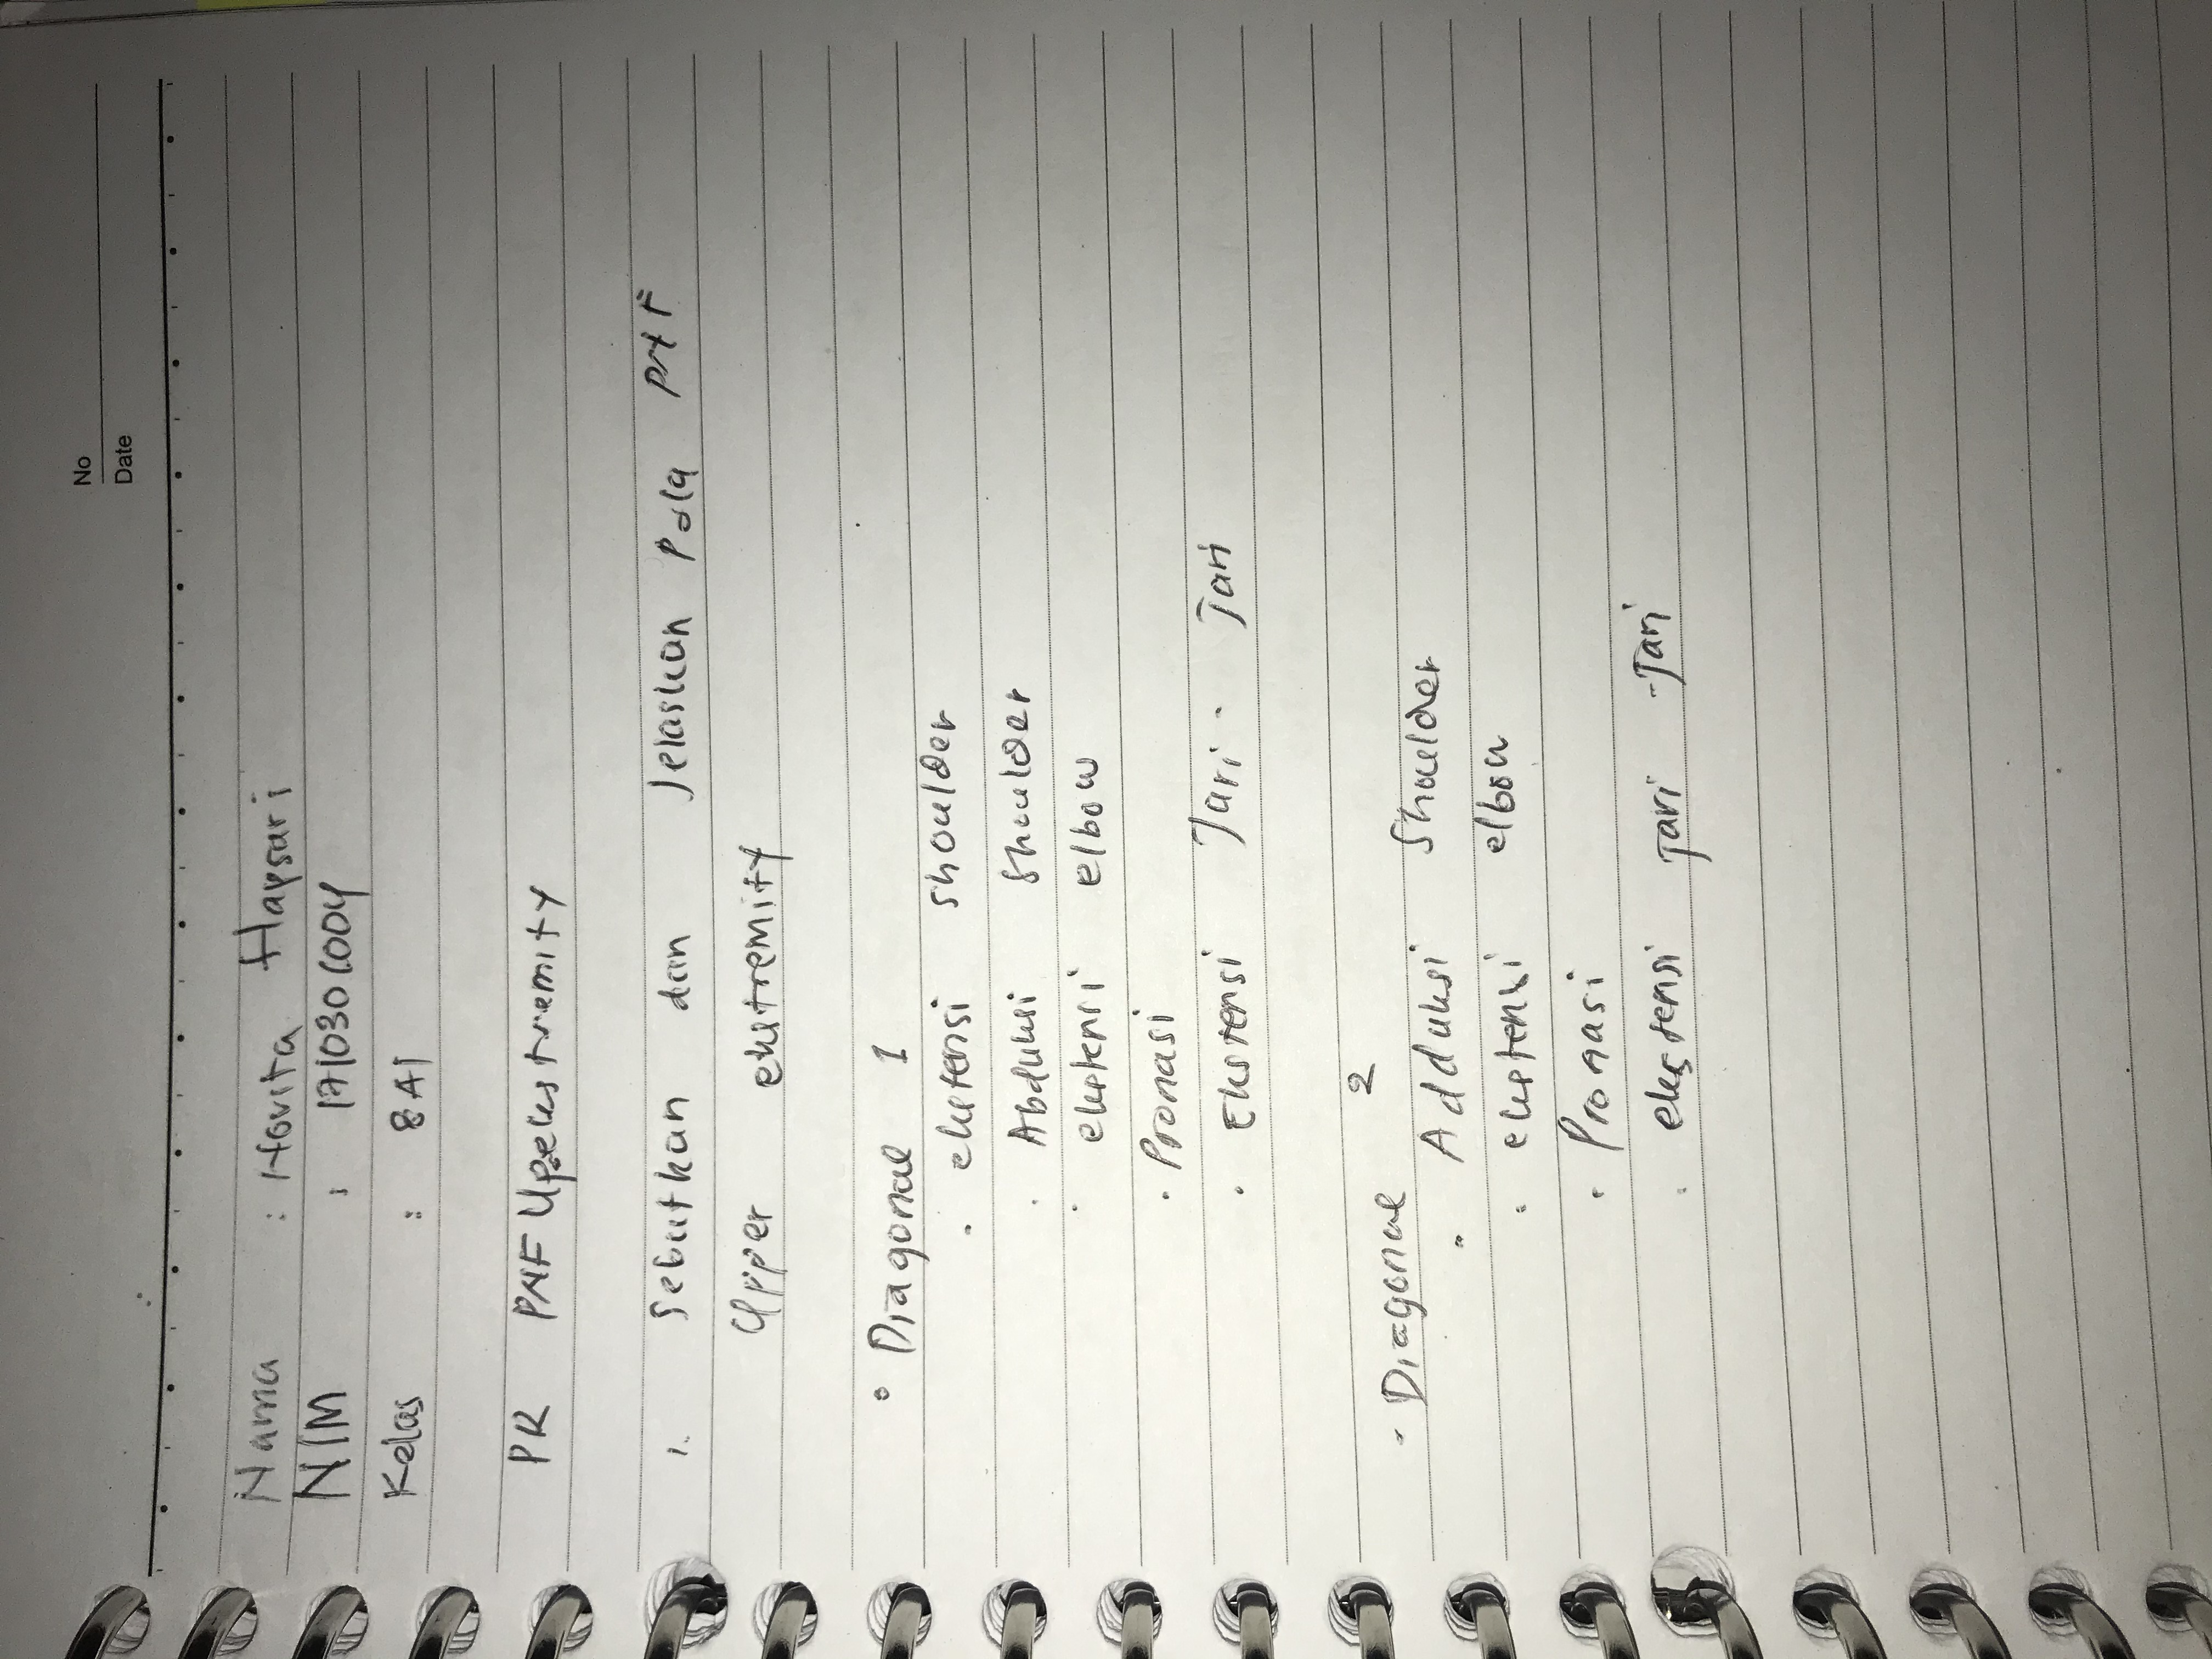 No
Date
Nama : Novita Hapsari
NIM : 1710301004
Kelas : 8A1
PR PNF Upekstremity
1. Sebutkan dan Jelaskan Pola PNF
Upper ekstremity
• Diagonal 1
• ekstensi shoulder
• Abduksi shoulder
• ekstensi elbow
• Pronasi
• Ekstensi Jari - Jari
• Diagonal 2
• Adduksi Shoulder
• ekstensi elbow
• Pronasi
• ekstensi jari - Jari